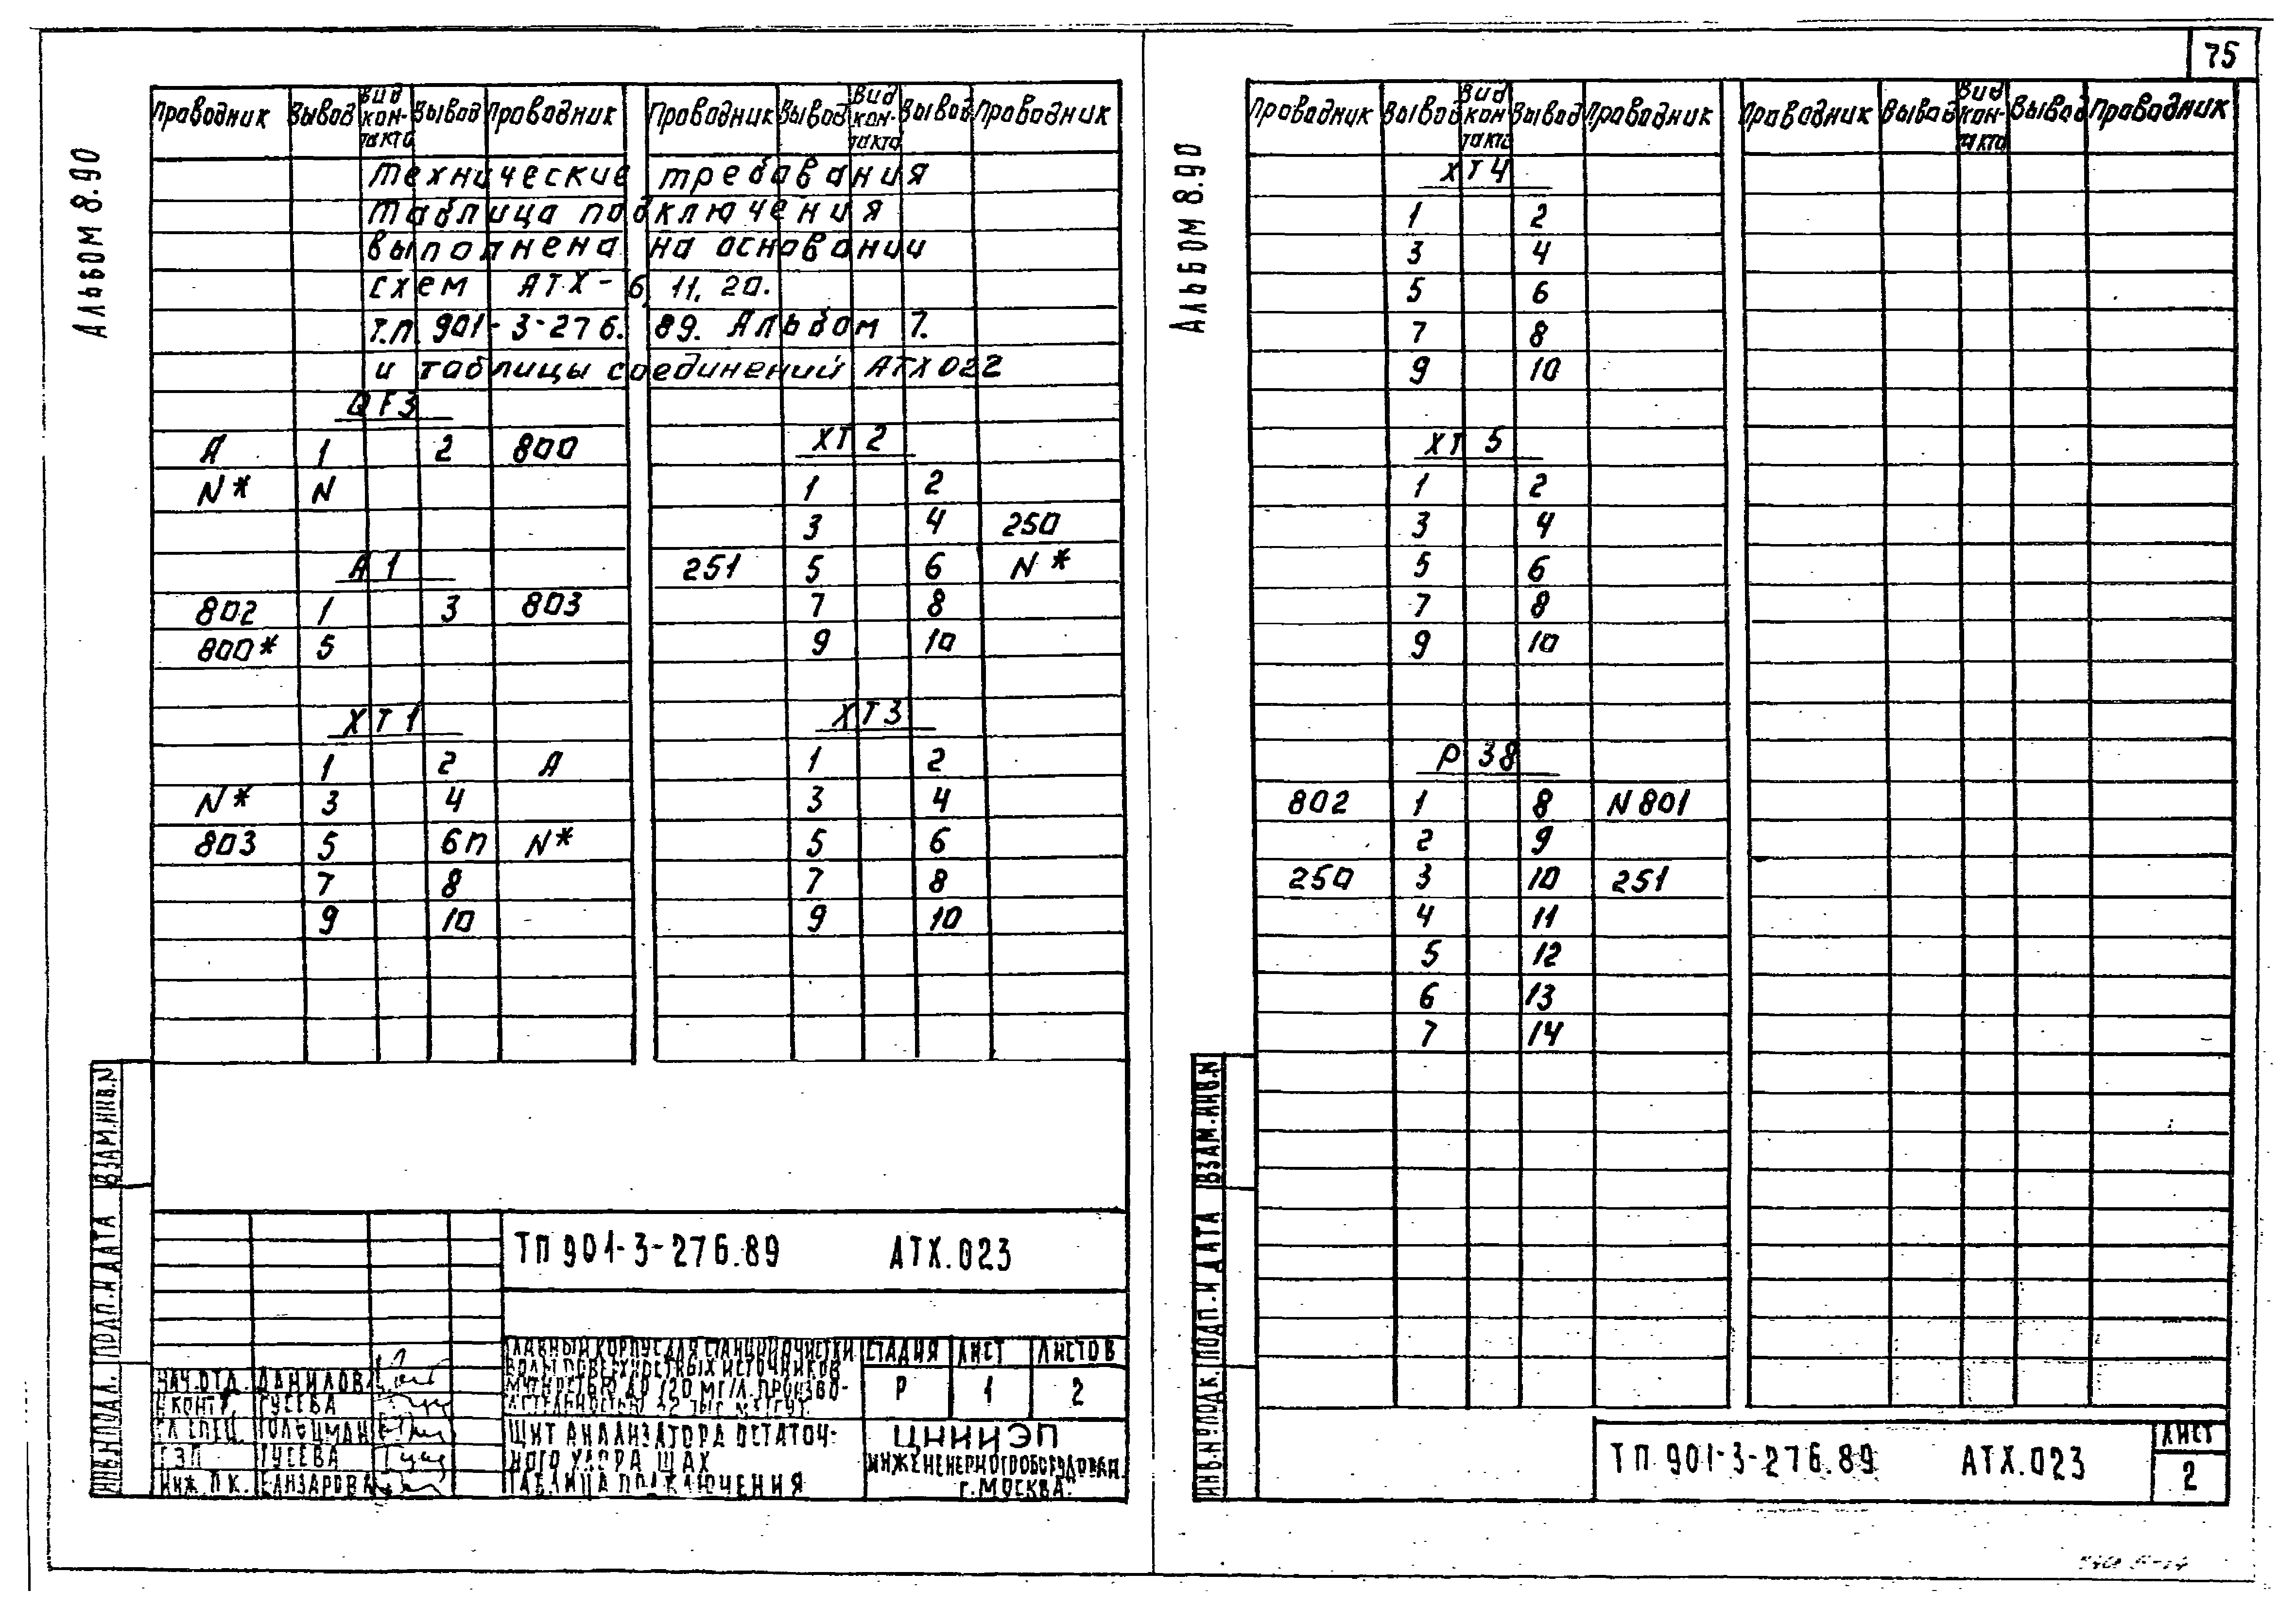 75
Альбом 8.90
Проводник Вывод Вид контакта Вывод Проводник Проводник Вывод Вид контакта Вывод Проводник
Технические требования
Таблица подключения
выполнена на основании
схем АТХ-6, 11, 20.
Т.П. 901-3-276.89. Альбом 7.
и таблицы соединений АТХ022
QF3
А 1 2 800
N* N
А1
802 1 3 803
800* 5
ХТ1
1 2 А
N* 3 4
803 5 6П N*
7 8
9 10
ХТ2
1 2
3 4 250
251 5 6 N*
7 8
9 10
ХТ3
1 2
3 4
5 6
7 8
9 10
ВЗАМ.ИНВ.N
ПОДП. И ДАТА
ИНВ.N ПОДЛ.
ТП 901-3-276.89 АТХ.023
ГЛАВНЫЙ КОРПУС ДЛЯ СТАНЦИИ ОЧИСТКИ
ВОДЫ ПОВЕРХНОСТНЫХ ИСТОЧНИКОВ
МУТНОСТЬЮ ДО 120 МГ/Л. ПРОИЗВО-
СТАДИЯ ЛИСТ ЛИСТОВ
Р 1 2
НАЧ.ОТД. ДАНИЛОВ
Н КОНТР. ГУСЕВА
ГЛ СПЕЦ. ГОЛЬЦМАН
ГЭП ГУСЕВА
ИНЖ. П К.
ЩИТ АНАЛИЗАТОРА ОСТАТОЧ-
НОГО ХЛОРА ЩАХ
ТАБЛИЦА ПОДКЛЮЧЕНИЯ
ЦНИИЭП
ИНЖЕНЕРНОГО ОБОРУДОВАН.
г. МОСКВА.
Альбом 8.90
Проводник Вывод Вид контакта Вывод Проводник Проводник Вывод Вид контакта Вывод Проводник
ХТ4
1 2
3 4
5 6
7 8
9 10
ХТ5
1 2
3 4
5 6
7 8
9 10
Р38
802 1 8 N801
2 9
250 3 10 251
4 11
5 12
6 13
7 14
ВЗАМ.ИНВ.N
ПОДП. И ДАТА
ИНВ.N° ПОДЛ.
ТП 901-3-276.89 АТХ.023
ЛИСТ
2